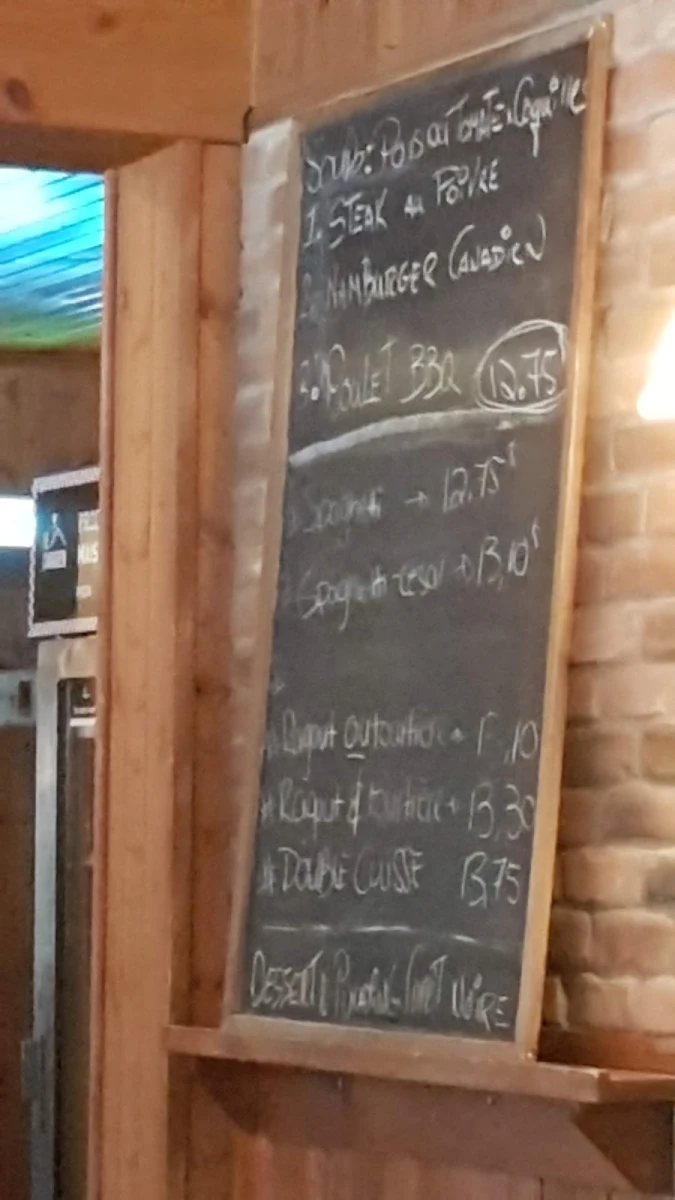 Soup: Pois ou Tomate & Coquilles
1. STEAK au POIVRE
2. HAMBURGER CANADIEN
3. POULET BBQ 12.75
Spaghetti → 12.75$
Spaghetti-césar → 13,10$
* Ragout ou tourtière → ,10
* Ragout & tourtière → 13,30
* DOUBLE CUISSE 13,75
DESSERT: Pouding-Forêt NOIRE